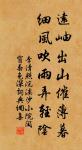 遠岫出山催薄暮
細風吹雨弄輕陰
李清照浣溪沙小院閑
窗春色深詞